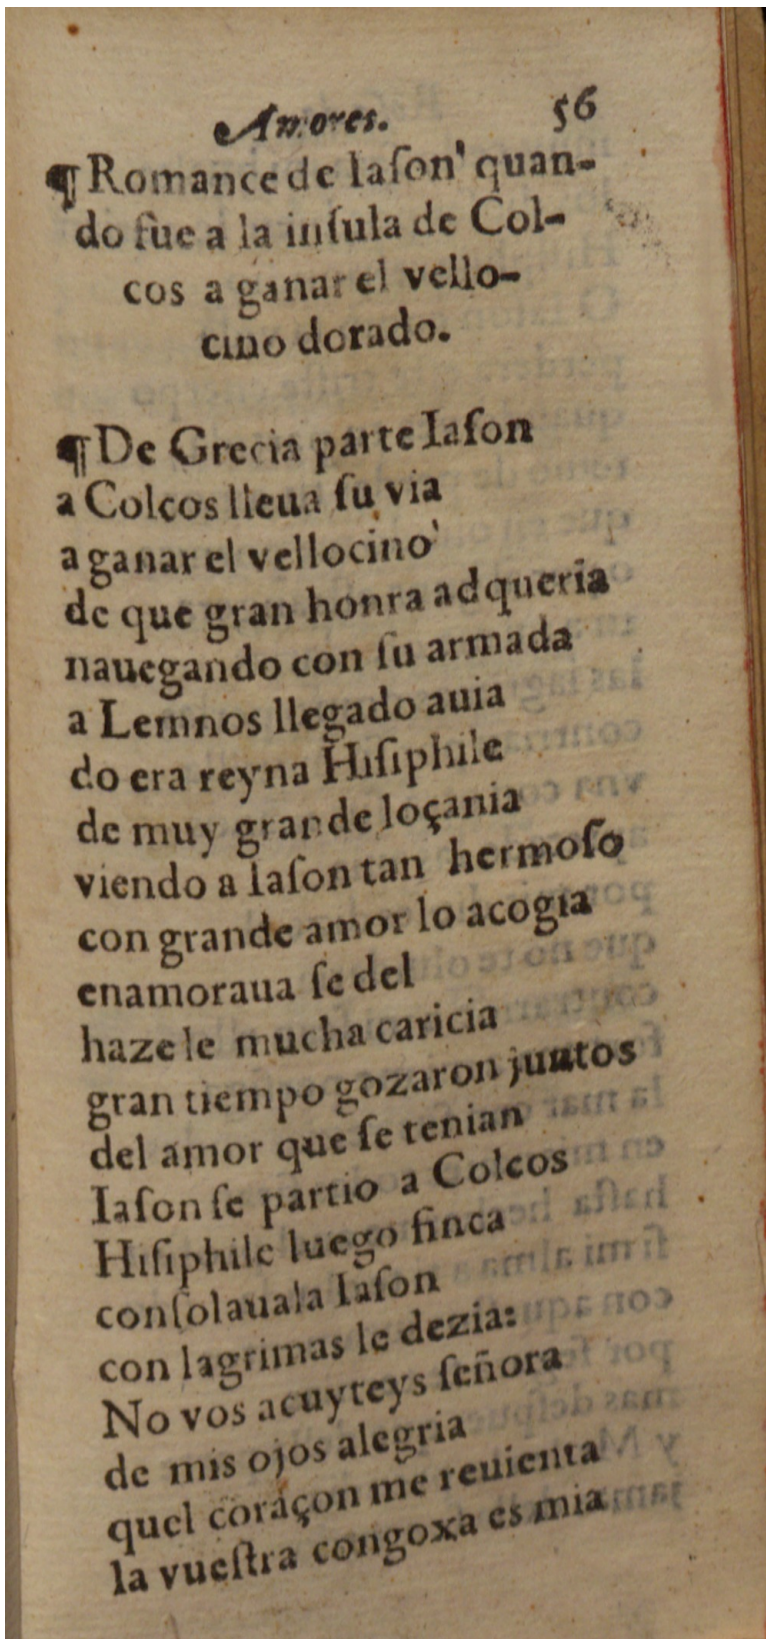 Amores. 56
¶ Romance de Iaſon quan-
do fue a la inſula de Col-
cos a ganar el vello-
cino dorado.
¶ De Grecia parte Iaſon
a Colcos lleua ſu via
a ganar el vellocino
de que gran honra adqueria
nauegando con ſu armada
a Lemnos llegado auia
do era reyna Hiſiphile
de muy grande loçania
viendo a Iaſon tan hermoſo
con grande amor lo acogia
enamoraua ſe del
hazele mucha caricia
gran tiempo gozaron juntos
del amor que ſe tenian
Iaſon ſe partio a Colcos
Hiſiphile luego finca
conſolauala Iaſon
con lagrimas le dezia:
No vos acuyteys ſeñora
de mis ojos alegria
quel coraçon me reuienta
la vueſtra congoxa es mia